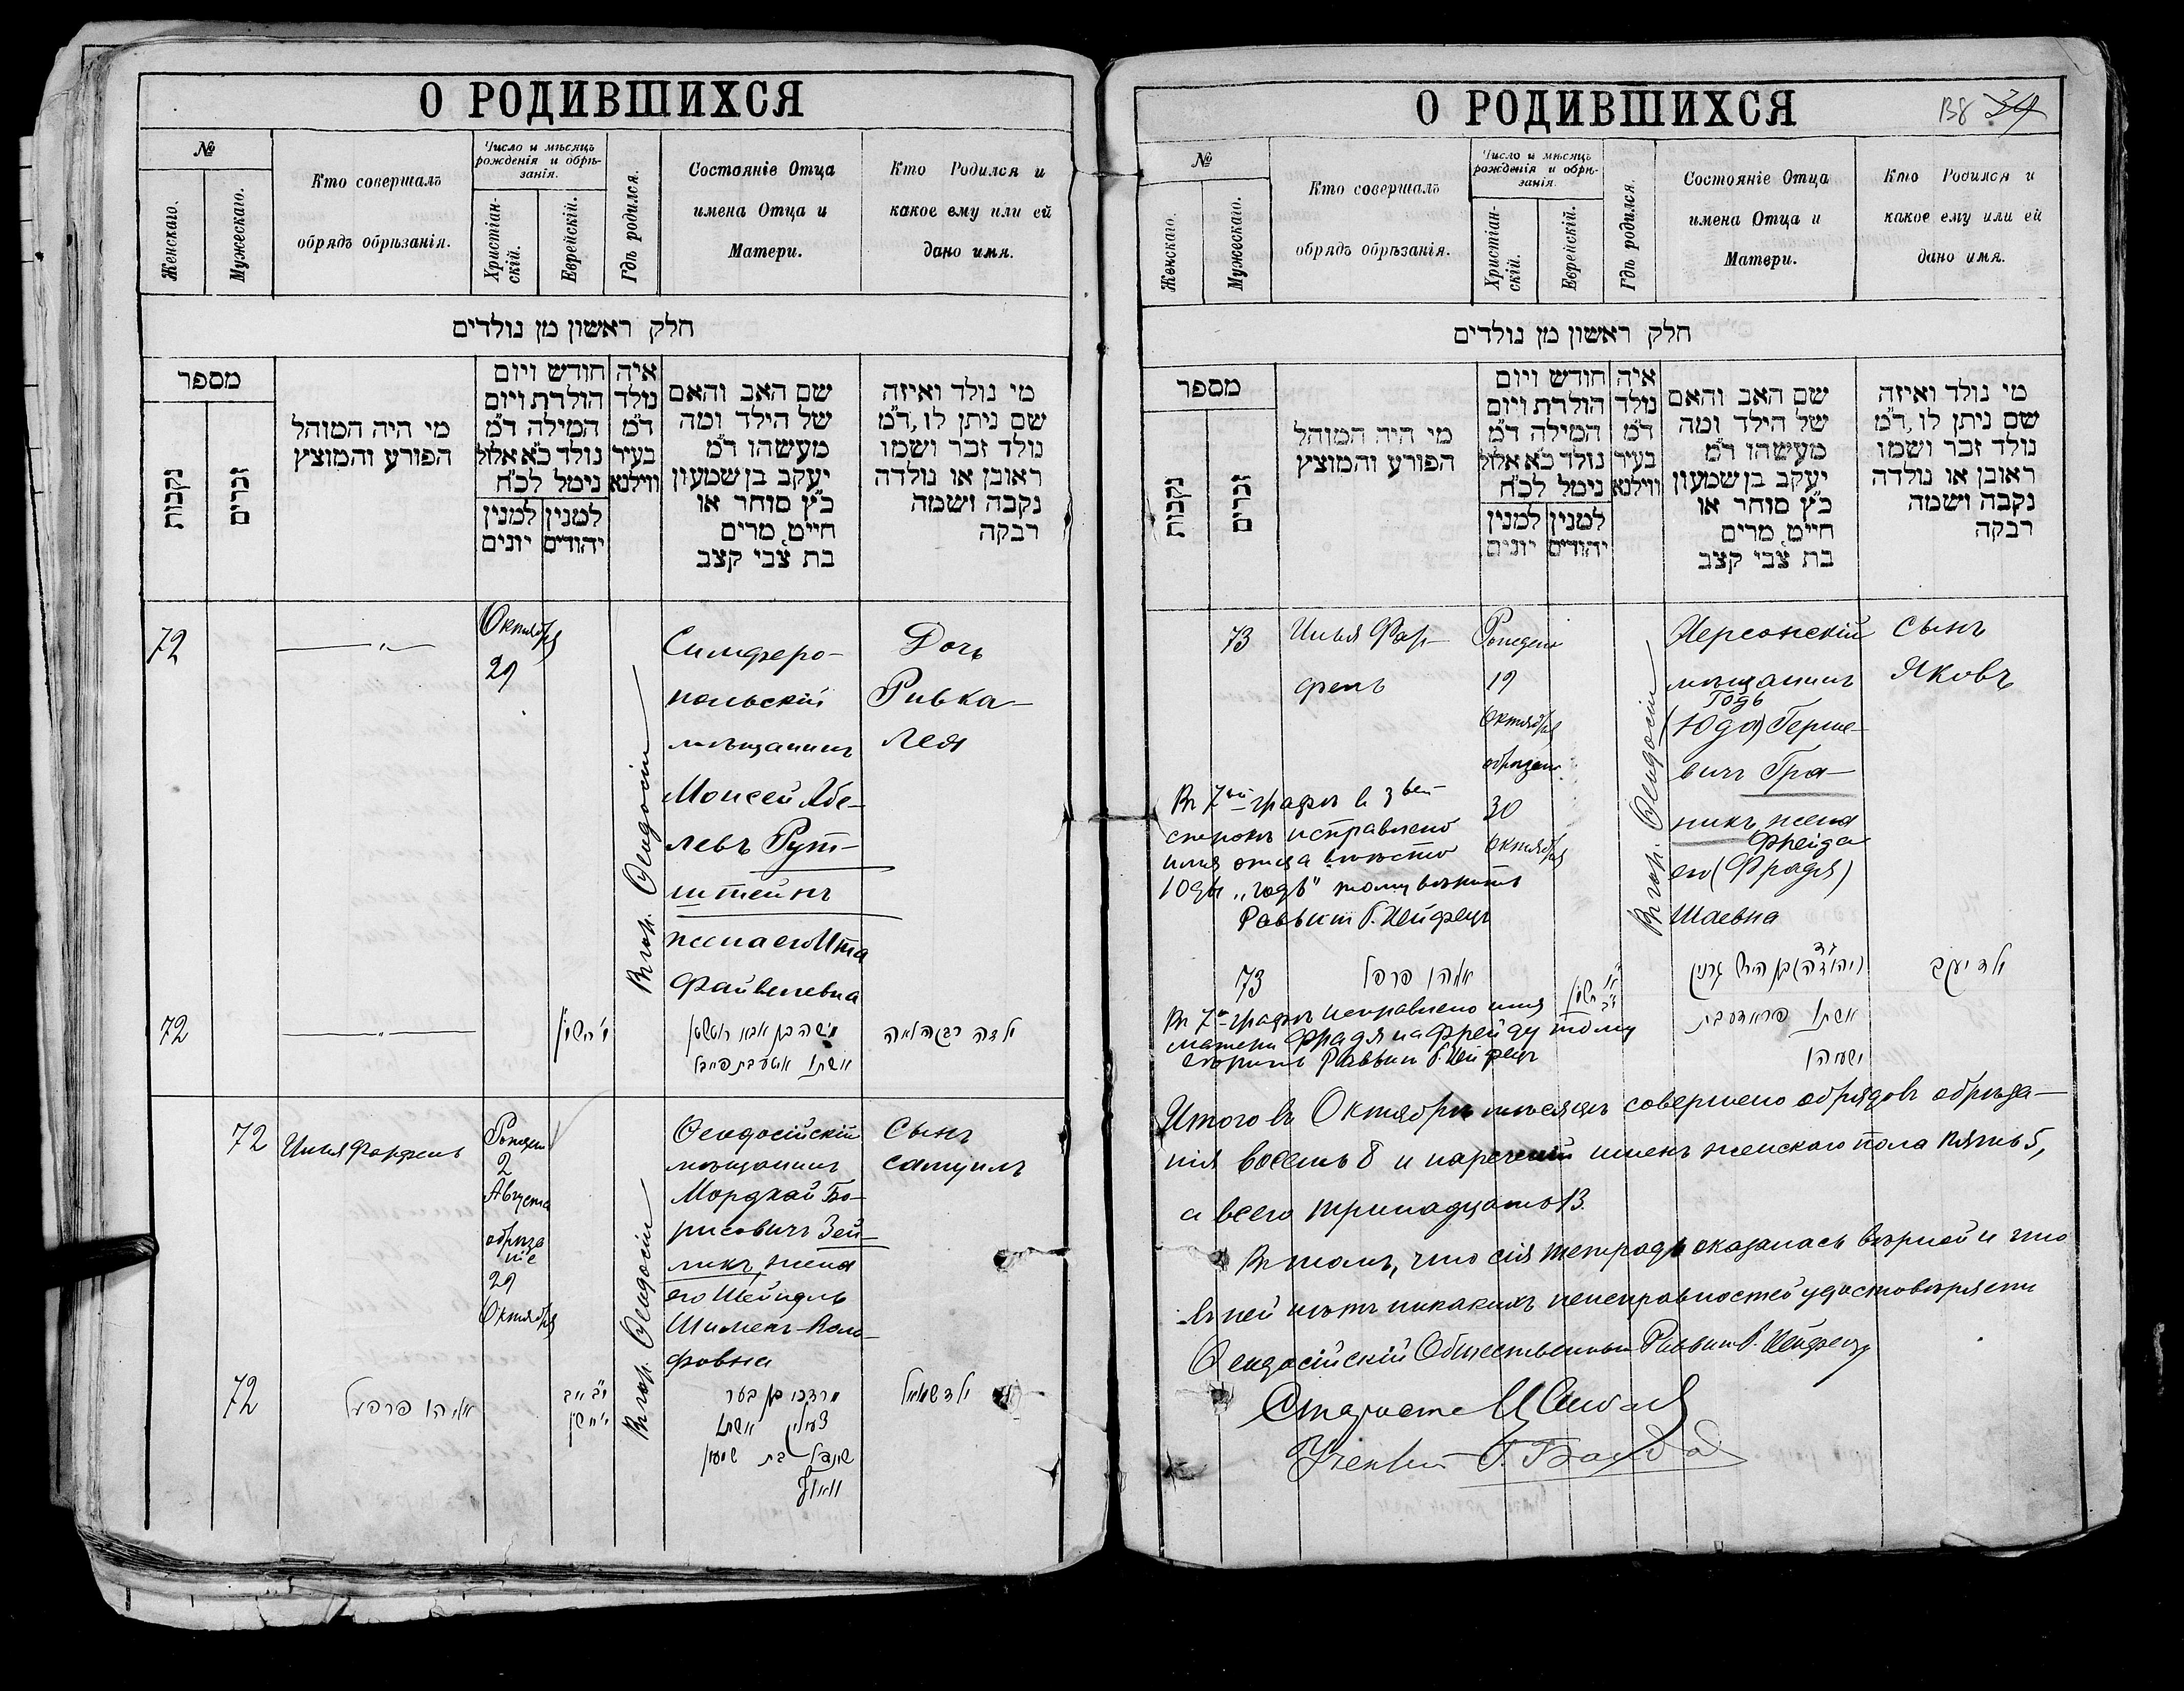 О РОДИВШИХСЯ
№
Женскаго.
Мужескаго.
Кто совершалъ
обрядъ обрѣзанія.
Число и мѣсяцъ
рожденія и обрѣ-
занія.
Христіан-
скій.
Еврейскій.
Гдѣ родился.
Состояніе Отца
имена Отца и
Матери.
Кто Родился и
какое ему или ей
дано имя.
חלק ראשון מן נולדים
מספר
נקבות
זכרים
מי היה המוהל
הפורע והמוצץ
חודש ויום
הולדת ויום
המילה ד״מ
נולד כ״א אלול
נימל לכ״ח
למנין יונים
למנין יהודים
איה
נולד
ד״מ
בעיר
ווילנא
שם האב והאם
של הילד ומה
מעשהו ד״מ
יעקב בן שמעון
כ״ץ סוחר או
חייט, מרים
בת צבי קצב
מי נולד ואיזה
שם ניתן לו, ד״מ
נולד זכר ושמו
ראובן או נולדה
נקבה ושמה
רבקה
72
Октября
29
Въ гор. Ѳеодосіи
Симферо-
польскій
мѣщанинъ
Моисей Абе-
левъ Рут-
штейнъ
жена его Ита
Файвелевна
Дочь
Ривка-
Лея
72
72
Илья Фарфель
2
Августа
обрѣза
ніе
29
Октября
Въ гор. Ѳеодосіи
Ѳеодосійскій
мѣщанинъ
Мордхай Бо-
рисовичъ Зей-
ликъ, жена
его Шейндль
Шимонъ-Воль-
фовна
Сынъ
Самуилъ
72
אליהו פרפעל
מרדכי בן בער
אשתו
בת שמעון
וואלף
ילד שמואל
О РОДИВШИХСЯ
138 34
№
Женскаго.
Мужескаго.
Кто совершалъ
обрядъ обрѣзанія.
Число и мѣсяцъ
рожденія и обрѣ-
занія.
Христіан-
скій.
Еврейскій.
Гдѣ родился.
Состояніе Отца
имена Отца и
Матери.
Кто Родился и
какое ему или ей
дано имя.
חלק ראשון מן נולדים
מספר
נקבות
זכרים
מי היה המוהל
הפורע והמוצץ
חודש ויום
הולדת ויום
המילה ד״מ
נולד כ״א אלול
נימל לכ״ח
למנין יונים
למנין יהודים
איה
נולד
ד״מ
בעיר
ווילנא
שם האב והאם
של הילד ומה
מעשהו ד״מ
יעקב בן שמעון
כ״ץ סוחר או
חייט, מרים
בת צבי קצב
מי נולד ואיזה
שם ניתן לו, ד״מ
נולד זכר ושמו
ראובן או נולדה
נקבה ושמה
רבקה
73
Илья Фар-
фель
19
Октября
30
Октября
Въ гор. Ѳеодосіи
Херсонскій
мѣщанинъ
Годъ
(Юда) Герше-
вичъ Гра-
никъ жена
Фрейда
его (Фрадя)
Шаевна
Сынъ
Яковъ
Въ 7ой графѣ въ 3ьей
строкѣ исправлено
имя отца вмѣсто
Юды „Годъ"
Раввинъ
73
אליהו פרפל
גד
(יהודה) בן הירש
אשתו
ישעיהו
ילד יעקב
Въ 7й графѣ исправлено имя
матери Фрадя на Фрейду
Раввинъ
Итого въ Октябрѣ мѣсяцѣ совершено обрядовъ обрѣза-
нія восемь 8 и нареченій именъ женскаго пола пять 5,
а всего тринадцать 13.
Въ томъ, что сія тетрадь оказалась вѣрной и что
въ ней нѣтъ никакихъ неисправностей удостовѣряетъ
Ѳеодосійскій Общественный Раввинъ
Староста